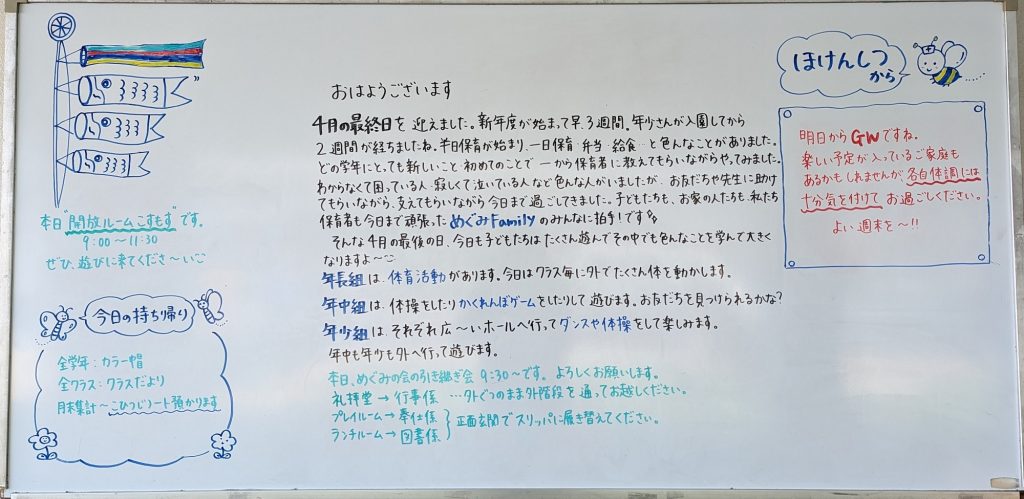 本日"開放ルームこすもす"です。
9:00～11:30
ぜひ、遊びに来てくださ～い
今日の持ち帰り
全学年：カラー帽
全クラス：クラスだより
月末集計～こひつじノート預かります
おはようございます
4月の最終日を迎えました。新年度が始まって早、3週間。年少さんが入園してから
2週間が経ちましたね。半日保育が始まり、一日保育・弁当・給食…と色んなことがありました。
どの学年にとっても新しいこと・初めてのことで一から保育者に教えてもらいながらやってみました。
わからなくて困っている人・寂しくて泣いている人など色んな人がいましたが、お友だちや先生に助け
てもらいながら、支えてもらいながら今日まで過ごしてきました。子どもたちも、お家の人たちも、私たち
保育者も今日まで頑張っためぐみFamilyのみんなに拍手!です
そんな4月の最後の日、今日も子どもたちはたくさん遊んでその中でも色んなことを学んで大きく
なりますよ～
年長組は、体育活動があります。今日はクラス毎に外でたくさん体を動かします。
年中組は、体操をしたりかくれんぼゲームをしたりして遊びます。お友だちを見つけられるかな?
年少組は、それぞれ広～いホールへ行ってダンスや体操をして楽しみます。
年中も年少も外へ行って遊びます。
本日、めぐみの会の引き継ぎ会 9:30～です。よろしくお願いします。
礼拝堂→行事係 …外ぐつのまま外階段を通ってお越しください。
プレイルーム→奉仕係
ランチルーム→図書係
正面玄関でスリッパに履き替えてください。
ほけんしつ
から
明日からGWですね。
楽しい予定が入っているご家庭も
あるかもしれませんが各自体調には
十分気を付けてお過ごしください。
よい週末を～!!